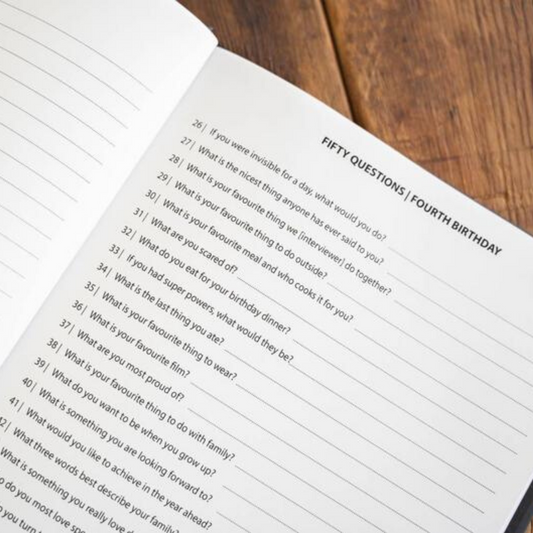 FIFTY QUESTIONS | FOURTH BIRTHDAY
26| If you were invisible for a day, what would you do?
27| What is the nicest thing anyone has ever said to you?
28| What is your favourite thing we [interviewer] do together?
29| What is your favourite thing to do outside?
30| What is your favourite meal and who cooks it for you?
31| What are you scared of?
32| What do you eat for your birthday dinner?
33| If you had super powers, what would they be?
34| What is the last thing you ate?
35| What is your favourite thing to wear?
36| What is your favourite film?
37| What are you most proud of?
38| What is your favourite thing to do with family?
39| What do you want to be when you grow up?
40| What is something you are looking forward to?
41| What would you like to achieve in the year ahead?
42| What three words best describe your family?
What is something you really love
do you most love
you turn